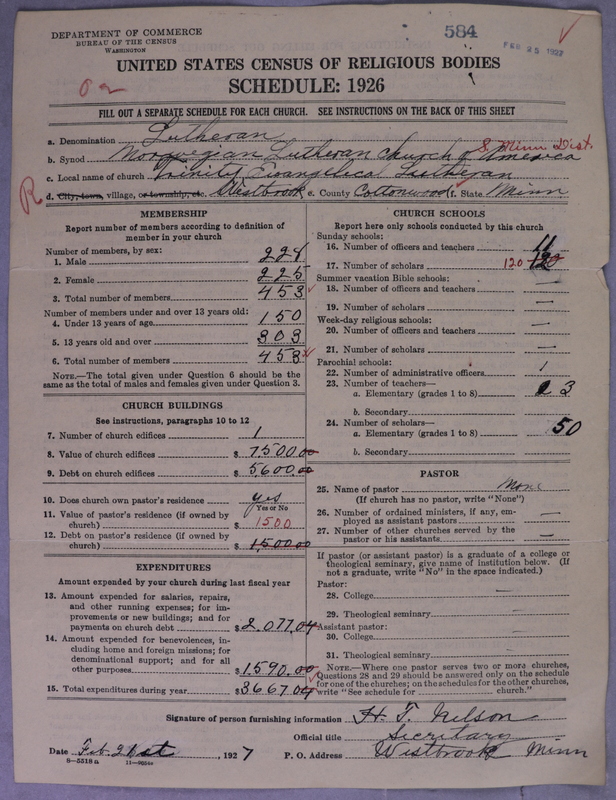 DEPARTMENT OF COMMERCE
BUREAU OF THE CENSUS
WASHINGTON
584
FEB 25 1927
UNITED STATES CENSUS OF RELIGIOUS BODIES
SCHEDULE: 1926
FILL OUT A SEPARATE SCHEDULE FOR EACH CHURCH. SEE INSTRUCTIONS ON THE BACK OF THIS SHEET
a. Denomination Lutheran
S. Minn Dist.
b. Synod Norwegian Lutheran Church of America
c. Local name of church Trinity Evangelical Lutheran
R
d. City, town, village, or township, etc. Westbrook e. County Cottonwood f. State Minn
MEMBERSHIP
Report number of members according to definition of
member in your church
Number of members, by sex:
1. Male 228
2. Female 225
3. Total number of members 453
Number of members under and over 13 years old:
4. Under 13 years of age 150
5. 13 years old and over 303
6. Total number of members 453
NOTE.—The total given under Question 6 should be
same as the total of males and females given under Question 3.
CHURCH BUILDINGS
See instructions, paragraphs 10 to 12
7. Number of church edifices 1
8. Value of church edifices $ 7500.00
9. Debt on church edifices $ 5600.00
10. Does church own pastor's residence yes
Yes or No
11. Value of pastor's residence (if owned by
church) $ 1500
12. Debt on pastor's residence (if owned by
church) $ 1,500.00
EXPENDITURES
Amount expended by your church during last fiscal year
13. Amount expended for salaries, repairs,
and other running expenses; for im-
provements or new buildings; and for
payments on church debt $ 2,077.04
14. Amount expended for benevolences, in-
cluding home and foreign missions; for
denominational support; and for all
other purposes $ 1590.00
15. Total expenditures during year $ 3667.04
CHURCH SCHOOLS
Report here only schools conducted by this church
Sunday schools:
16. Number of officers and teachers 11
17. Number of scholars 120 120
Summer vacation Bible schools:
18. Number of officers and teachers —
19. Number of scholars —
Week-day religious schools:
20. Number of officers and teachers —
21. Number of scholars —
Parochial schools:
22. Number of administrative officers 1
23. Number of teachers—
a. Elementary (grades 1 to 8) 3
b. Secondary
24. Number of scholars—
a. Elementary (grades 1 to 8) 50
b. Secondary
PASTOR
25. Name of pastor None
(If church has no pastor, write "None")
26. Number of ordained ministers, if any, em-
ployed as assistant pastors —
27. Number of other churches served by the
pastor or his assistants —
If pastor (or assistant pastor) is a graduate of a college or
theological seminary, give name of institution below. (If
not a graduate, write "No" in the space indicated.)
Pastor:
28. College —
29. Theological seminary —
Assistant pastor:
30. College —
31. Theological seminary —
NOTE.—Where one pastor serves two or more churches,
Questions 28 and 29 should be answered only on the schedule
for one of the churches; on the schedules for the other churches,
write "See schedule for church."
Signature of person furnishing information H. T. Nelson
Official title Secretary
Date Feb. 21st, 1927 P. O. Address Westbrook Minn
8—5518a 11—9064